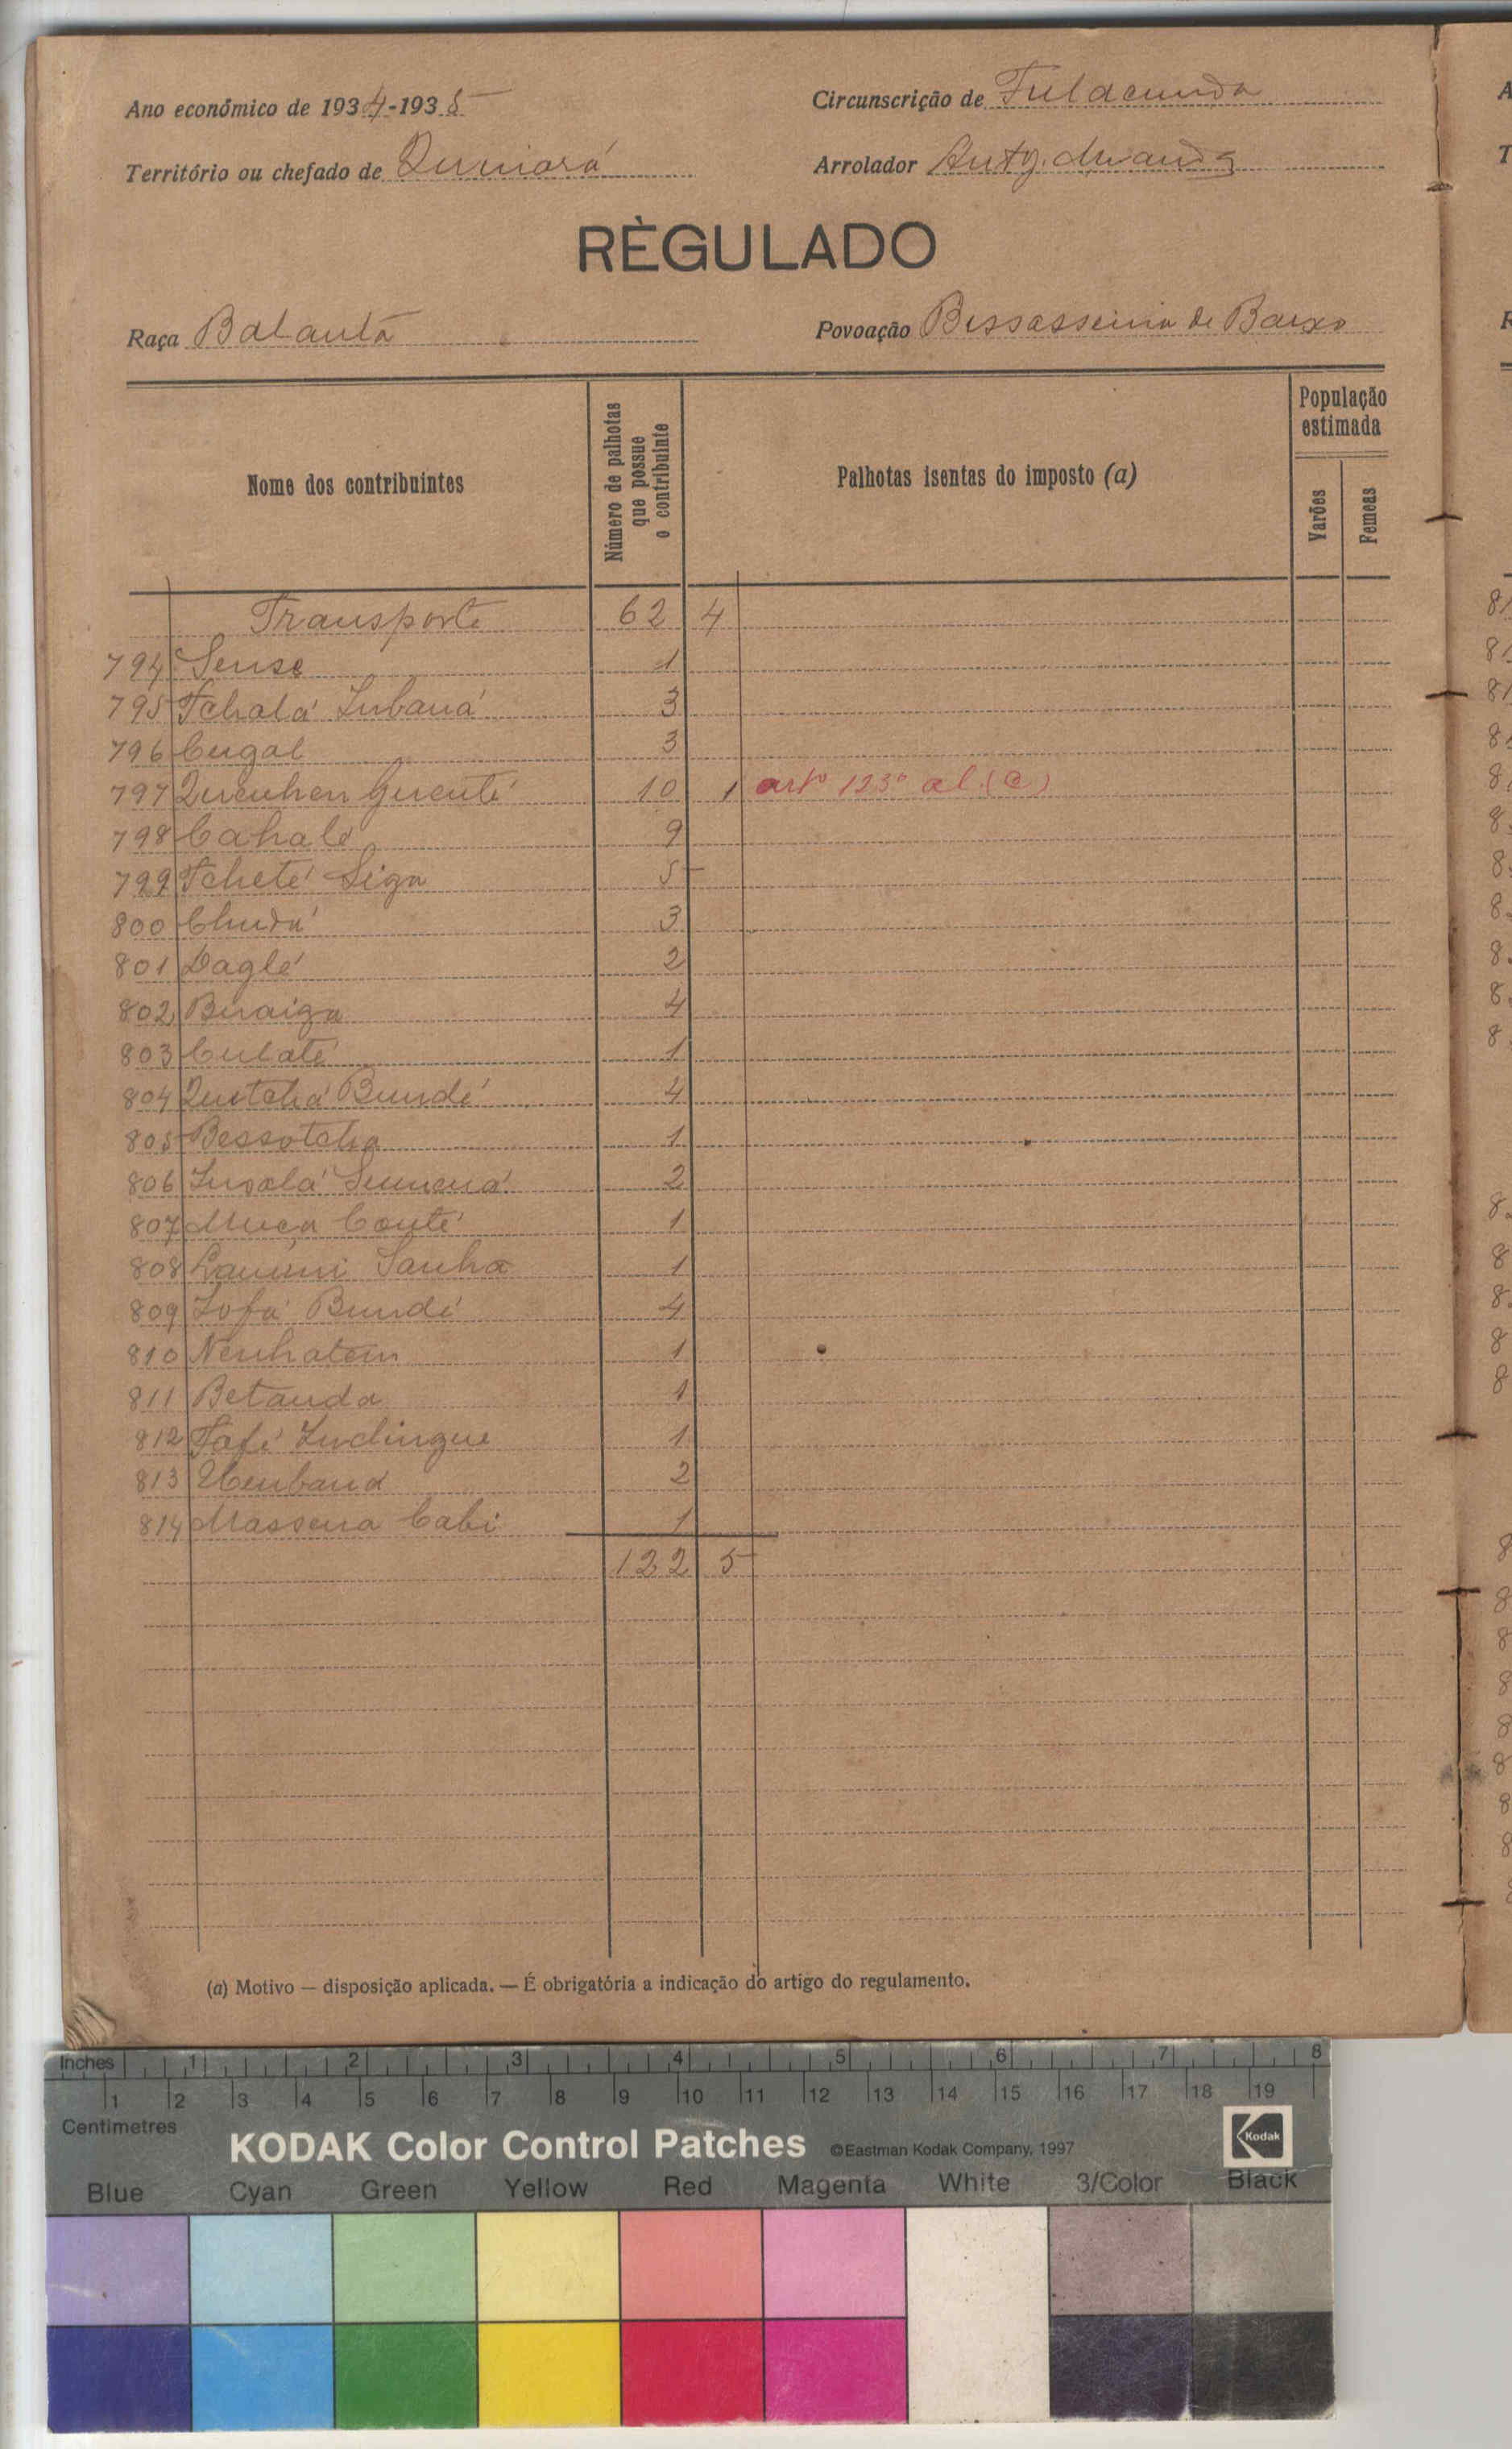 Ano económico de 1934-1935
Circunscrição de Fulacunda
Território ou chefado de Quinará
Arrolador Antº. Miranda
RÈGULADO
Raça Balanta
Povoação Bissasseima de Baixo
Nome dos contribuintes
Número de palhotas que possue o contribuinte
Palhotas isentas do imposto (a)
População estimada
Varões
Femeas
Transporte 62 4
794 Sense 1
795 Tchalá Inbaná 3
796 Cugal 3
797 Guenté 10 1 artº 123º al. (c)
798 Cahale 9
799 Tcheté Siga 5
800 Chudá 3
801 Daglé 2
802 Biraiga 4
803 Culaté 1
804 Quitchá Bundé 4
805 Bessotcha 1
806 2
807 Muça Conté 1
808 Lamini Sanha 1
809 Iofá Bundé 4
810 Nenhatem 1
811 Betanda 1
812 Tafé Indingue 1
813 2
814 Massena Cabi 1
122 5
(a) Motivo — disposição aplicada. — É obrigatória a indicação do artigo do regulamento.
Inches 1 2 3 4 5 6 7 8
1 2 3 4 5 6 7 8 9 10 11 12 13 14 15 16 17 18 19
Centimetres
KODAK Color Control Patches ©Eastman Kodak Company, 1997 Kodak
Blue Cyan Green Yellow Red Magenta White 3/Color Black